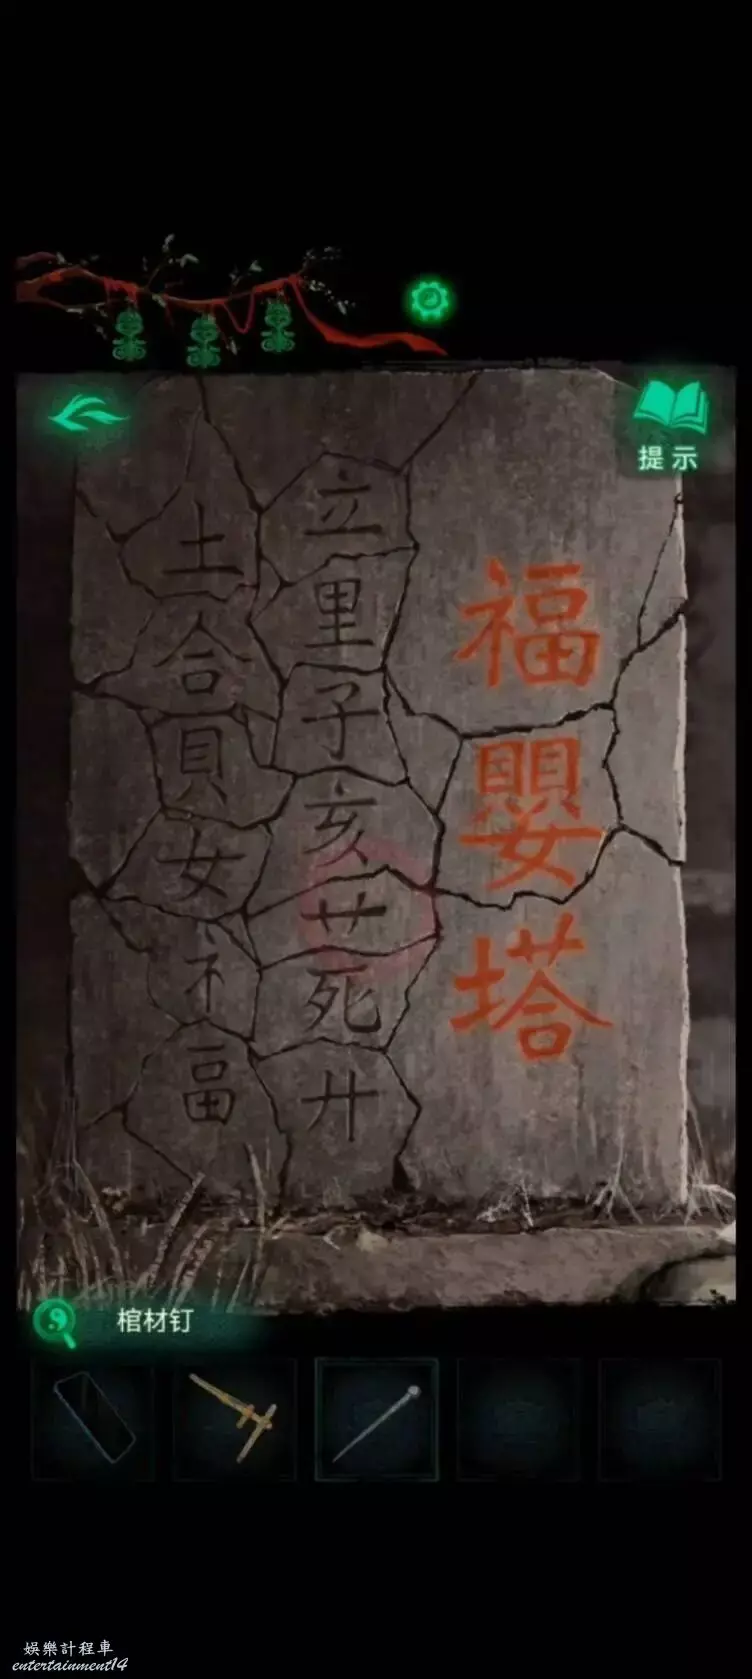 提示
福嬰塔
立里子亥艹死廾
土合貝女礻畐
棺材钉
娛樂計程車
entertainment14